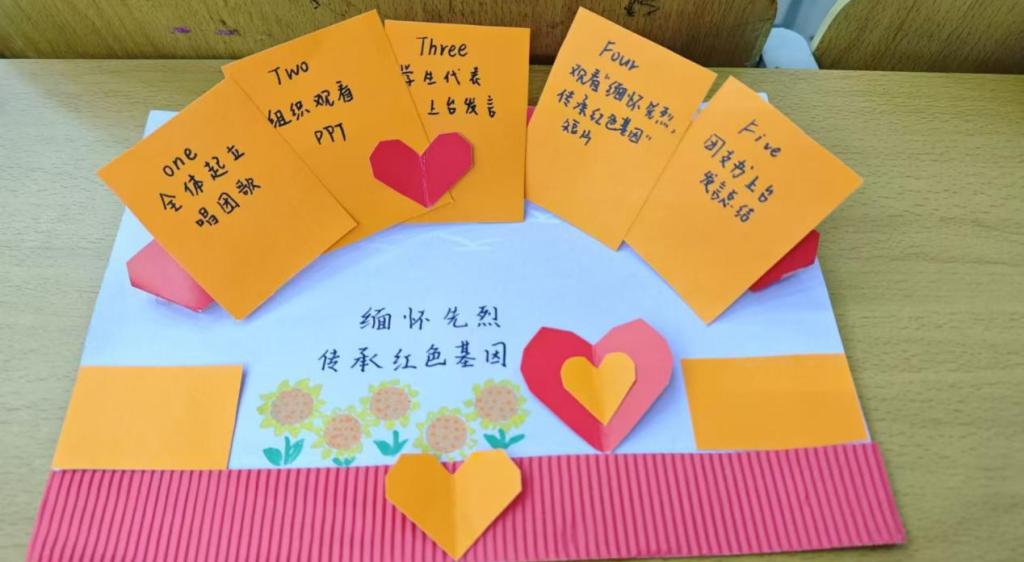 one
全体起立
唱团歌
Two
组织观看
PPT
Three
学生代表
上台发言
Four
观看“缅怀先烈,
传承红色基因”
短片
Five
团支书上台
发言总结
缅怀先烈
传承红色基因